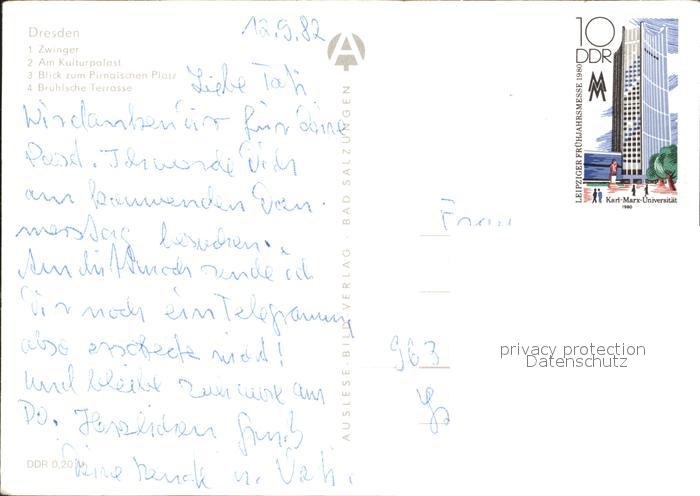 Dresden
1 Zwinger
2 Am Kulturpalast
3 Blick zum Pirnaischen Platz
4 Brühlsche Terrasse
12.9.82
Liebe
Wir danken Dir für Deine
Ich werde Dich
am kommenden Don-
nerstag besuchen.
Am Mittwoch sende ich
Dir noch ein Telegramm
also erschrecke nicht!
und bleibe zuhause am
Do. Herzlichen Gruß
Deine u.
DDR 0,20 M
AUSLESE-BILD-VERLAG · BAD SALZUNGEN
10
DDR
MM
LEIPZIGER FRÜHJAHRSMESSE 1980
Karl-Marx-Universität
1980
Frau
963
privacy protection
Datenschutz